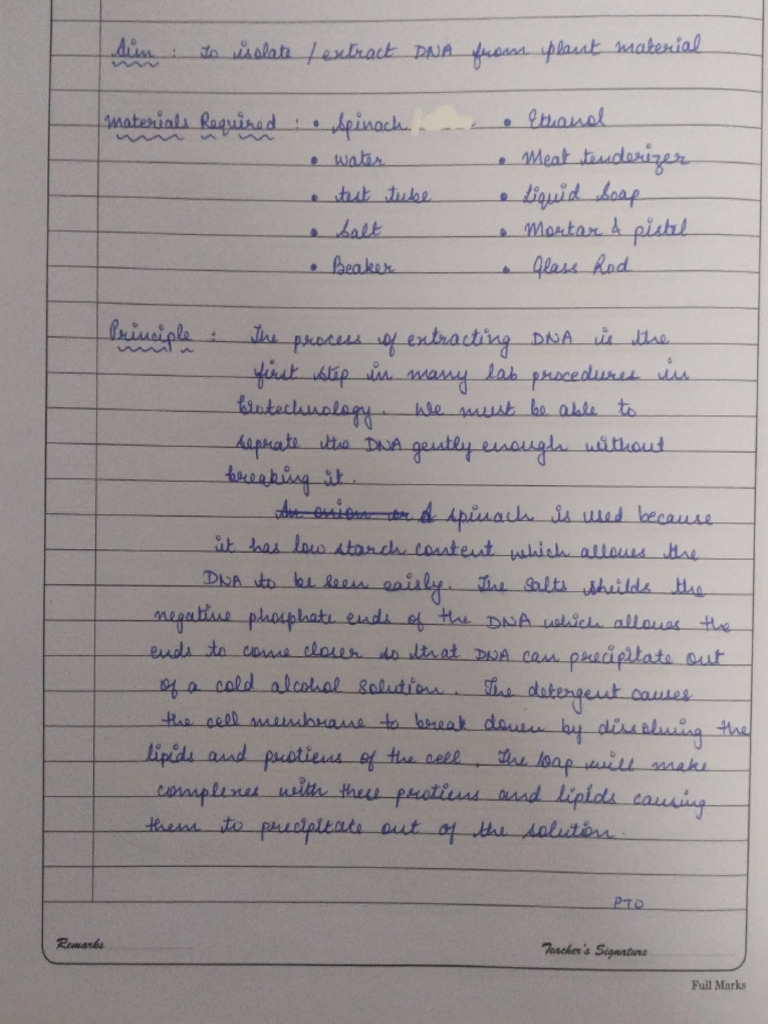 Aim : To isolate / extract DNA from plant material
Materials Required : • Spinach • Ethanol
• Water • Meat tenderizer
• test tube • Liquid Soap
• Salt • Mortar & pistel
• Beaker • Glass Rod
Principle : The process of extracting DNA is the
first step in many lab procedures in
biotechnology. We must be able to
seprate the DNA gently enough without
breaking it.
An onion or A spinach is used because
it has low starch content which allowes the
DNA to be seen eaisly. The Salts sheilds the
negative phosphate ends of the DNA which allowes the
ends to come closer so that DNA can precipitate out
of a cold alcohol solution. The detergent causes
the cell membrane to break down by dissolving the
lipids and protiens of the cell. The soap will make
complexes with these protiens and lipids causing
them to precipitate out of the solution.
PTO
Remarks Teacher's Signature
Full Marks